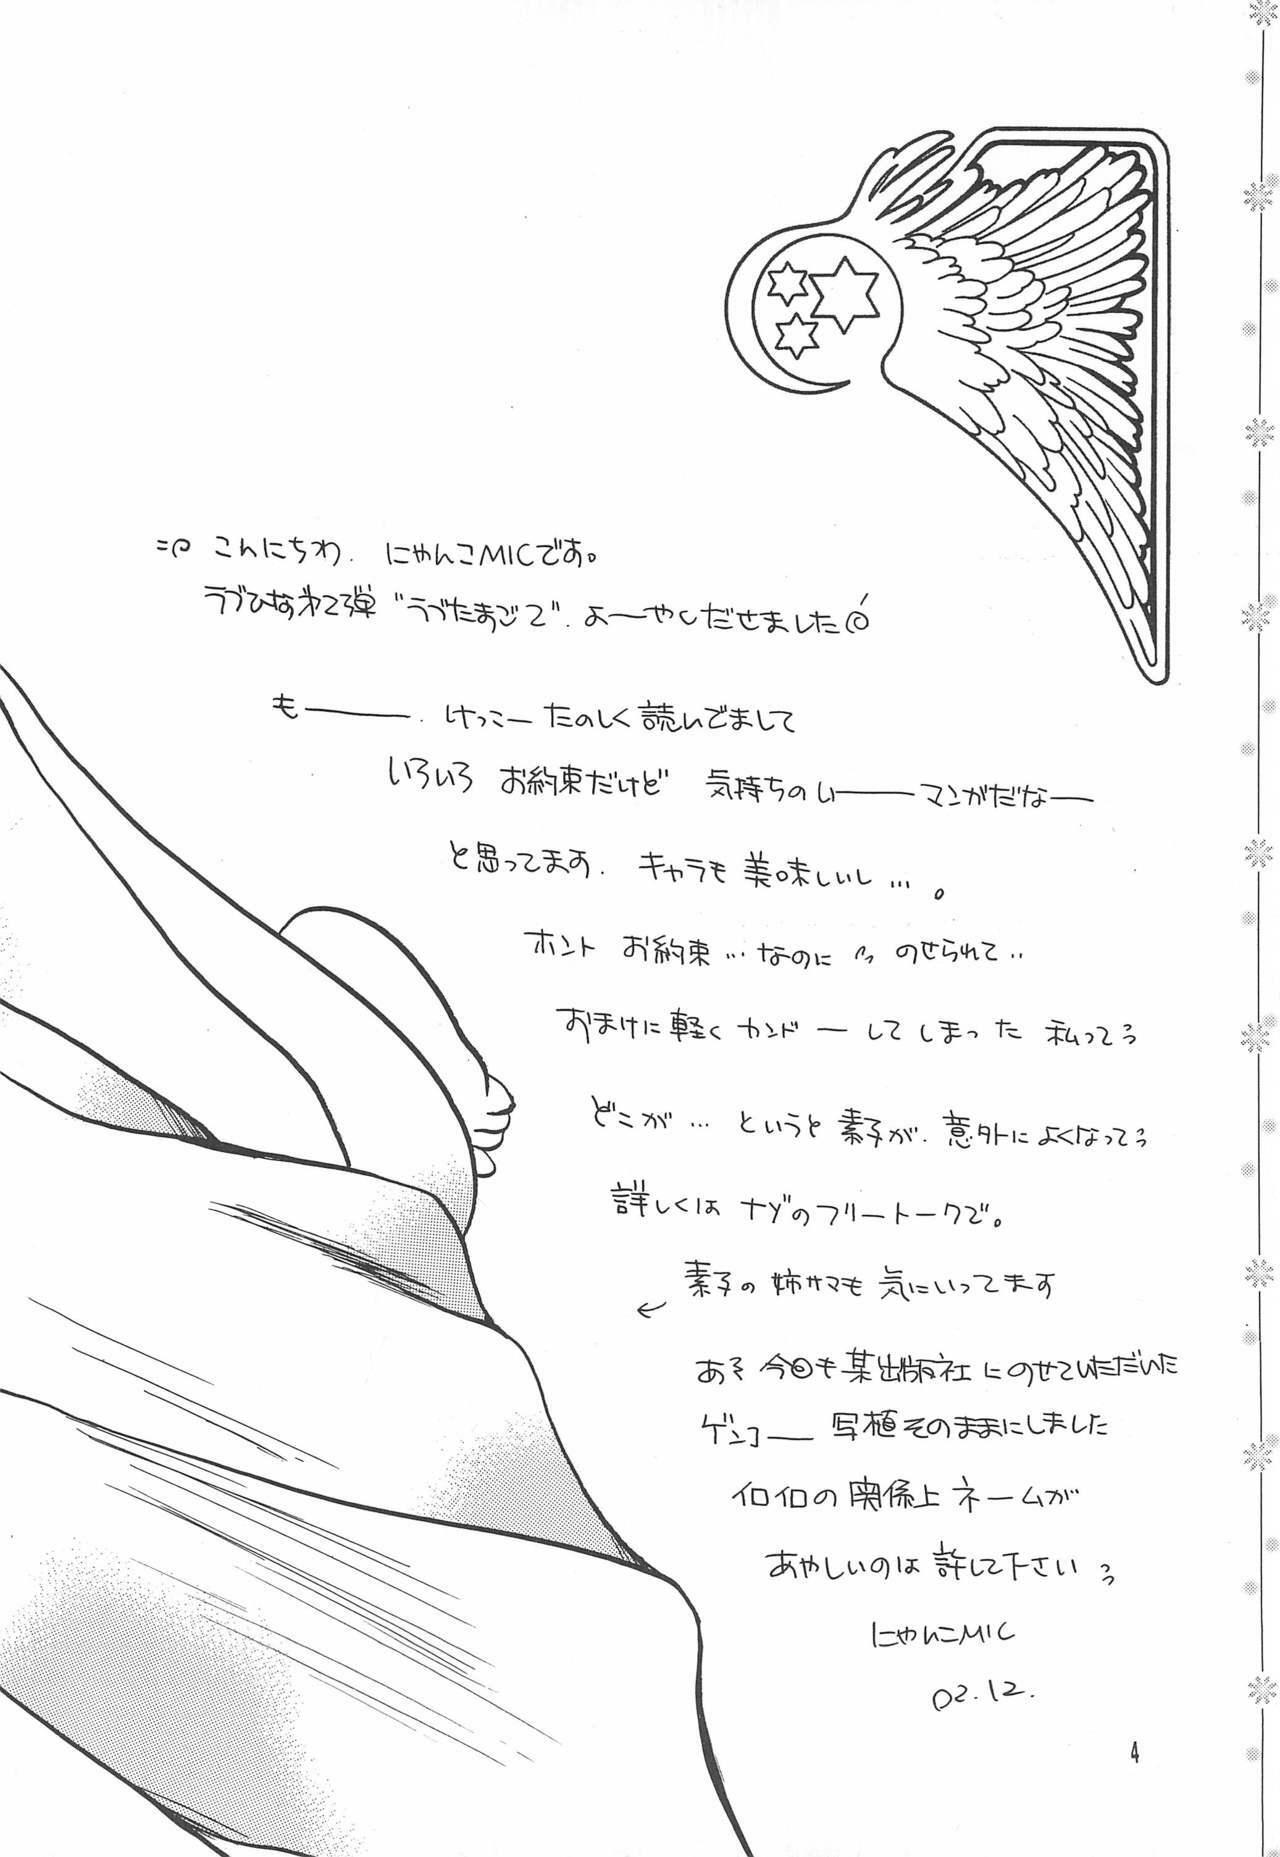 こんにちわ. にゃんこMICです。
ラブひなオて弾 "ラブたまごで". よーやくだせました
もー. けっこーたのしく読んでまして
いろいろ お約束だけど 気持ちのいーマンガだなー
と思ってます. キャラも美味しいし…。
ホント お約束…なのに のせられて..
おまけに軽くカンドーしてしまった 私って
どこが…というと素子が. 意外によくなってっ
詳しくは ナゾのフリートークで。
素子の姉サマも 気にいってます
あそ 今回も某出版社にのせていただいた
ゲンコー 写植そのままにしました
イロイロの関係上 ネームが
あやしいのは 許して下さい
にゃんこMIC
02.12.
4